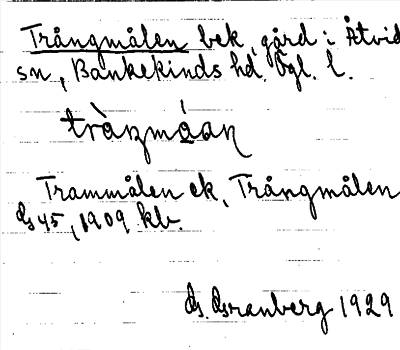 Trångmålen bek, gård i Åtvid
sn, Bankekinds hd. Ögl. l.
tràŋmó̱an
Trammålen ek, Trångmålen
Gs 45, 1909 kb.
G. Granberg 1929